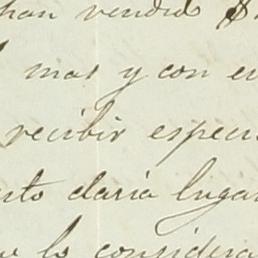 han vendido $
mas y con e
recibir especi
sto daria lugar
lo considera